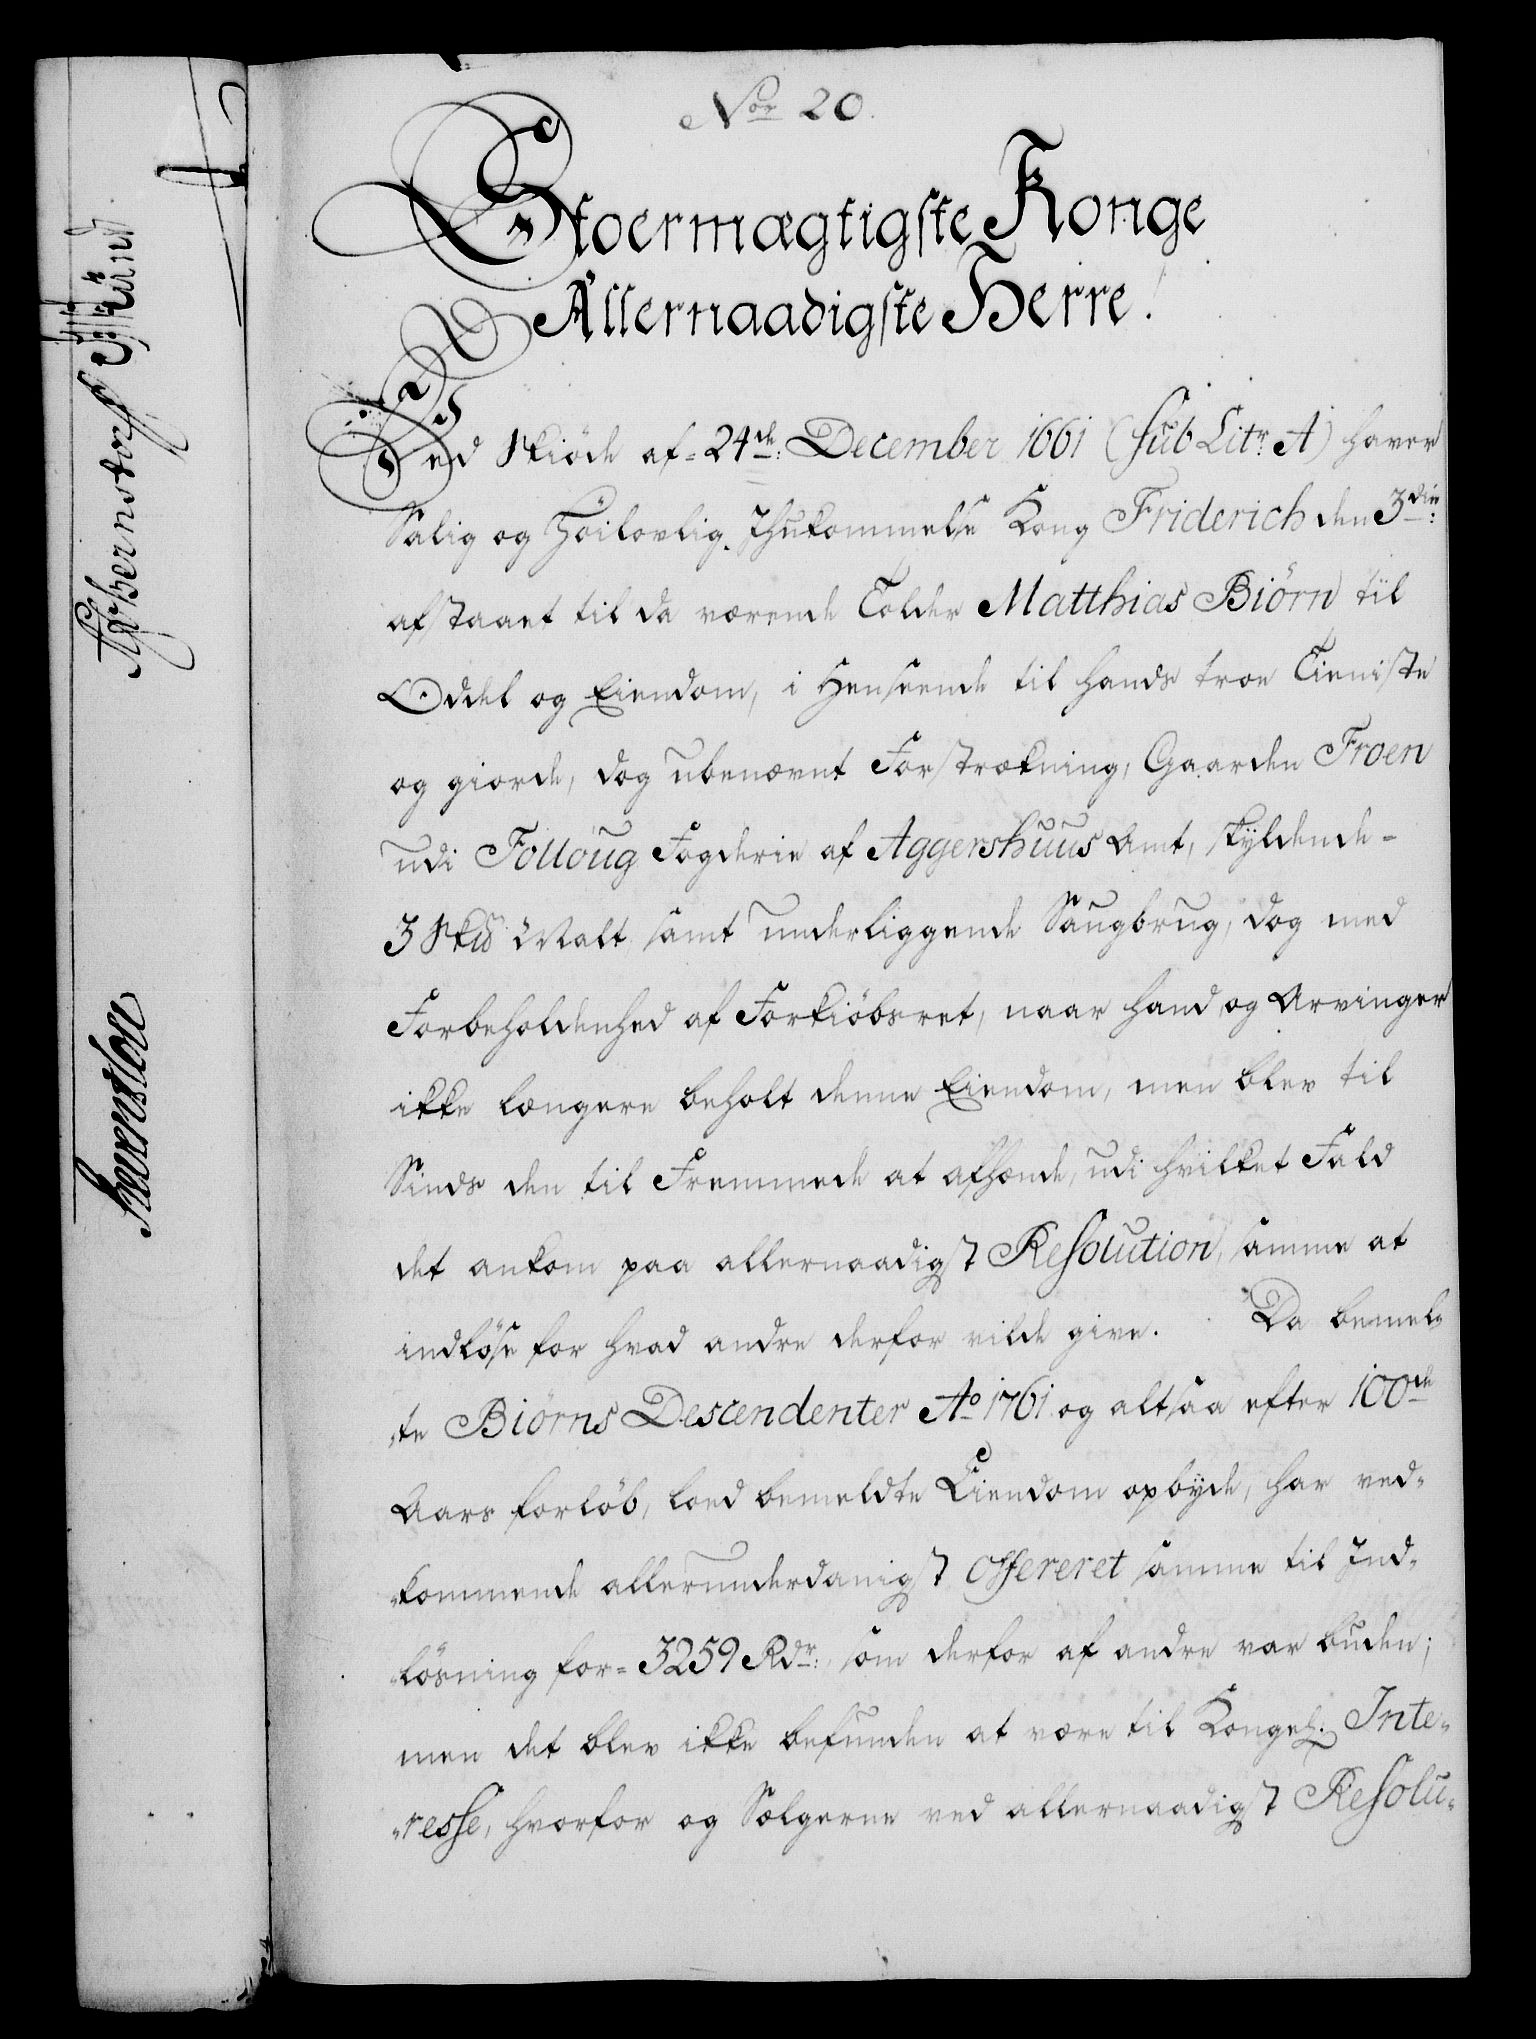 No. 20.
Stoermægtigste Konge
Allernaadigste Herre!
Ved Skiøde af 24de: December 1661 (Sub Litr: A) haver
Salig og Høilovlig Ihukommelse Kong Friderich den 3die:
afstaaet til da værende Tolder Matthias Biörn til
Oddel og Eiendom, i Henseende til hands troe Tieniste
og giorde, dog ubenævnt Forstrækning, Gaarden Froen
udi Follöug Fogderie af Aggershuus Amt, skyldende-
3 Skd Malt samt underliggende Saugbrug, dog med
Forbeholdenhed af Forkiöbsret, naar hand og Arvinger
ikke længere beholt denne Eiendom, men blev til
Sinds den til Fremmede at afhænde, udi hvilket Fald
det ankom paa allernaadigst Resolution, samme at
indløse for hvad andre derfor vilde give. Da bemel-
-te Biörns Descendenter Ao 1761 og altsaa efter 100de
Aars forløb, loed bemeldte Eiendom opbyde, har ved-
-kommende allerunderdanigst offereret samme til Ind-
-løsning for 3259 Rdr:, som derfor af andre var buden;
men det blev ikke befunden at være til Kongel: Inte-
-resse, hvorfor og Sælgerne ved allernaadigst Resolu-